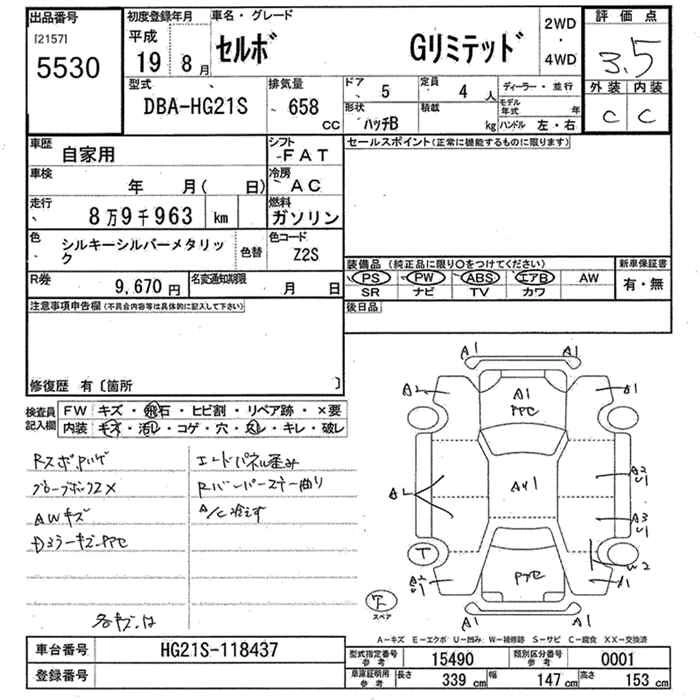 出品番号
[2157]
5530
初度登録年月
平成
19 8 月
車名・グレード
セルボ Gリミテッド
2WD
・
4WD
評価点
3.5
外装 内装
C C
型式
DBA-HG21S
排気量
658
CC
ドア 5
定員 4 人
形状 ハッチB
積載 kg
ディーラー・並行
モデル年式 年
ハンドル 左・右
車歴
自家用
シフト
FAT
車検
年 月( 日)
冷房
AC
走行
8万9千963 km
燃料
ガソリン
色
シルキーシルバーメタリック
色替
色コード
Z2S
R券
9,670円
名変通知期限
月 日
セールスポイント(正常に機能するものに限ります)
装備品 (純正品に限り○をつけてください)
新車保証書
PS PW ABS エアB AW
SR ナビ TV カワ
有・無
後日品
注意事項申告欄(不具合内容等は具体的に記入して下さい)
修復歴 有〔箇所 〕
検査員記入欄
FW キズ・飛石・ヒビ割・リペア跡・×要
内装 キズ・汚レ・コゲ・穴・スレ・キレ・破レ
グローブボックスX
AWキズ
A/C冷えず
A1 A1
A2 A1 A1
PPC
A2
U1
A3
U1
W2
T
スペア
A−キズ E−エクボ U−凹み W−補修跡 S−サビ C−腐食 XX−交換済
車台番号
HG21S-118437
登録番号
型式指定番号
参考
15490
類別区分番号
参考
0001
車庫証明用
参考
長さ 339 cm
幅 147 cm
高さ 153 cm